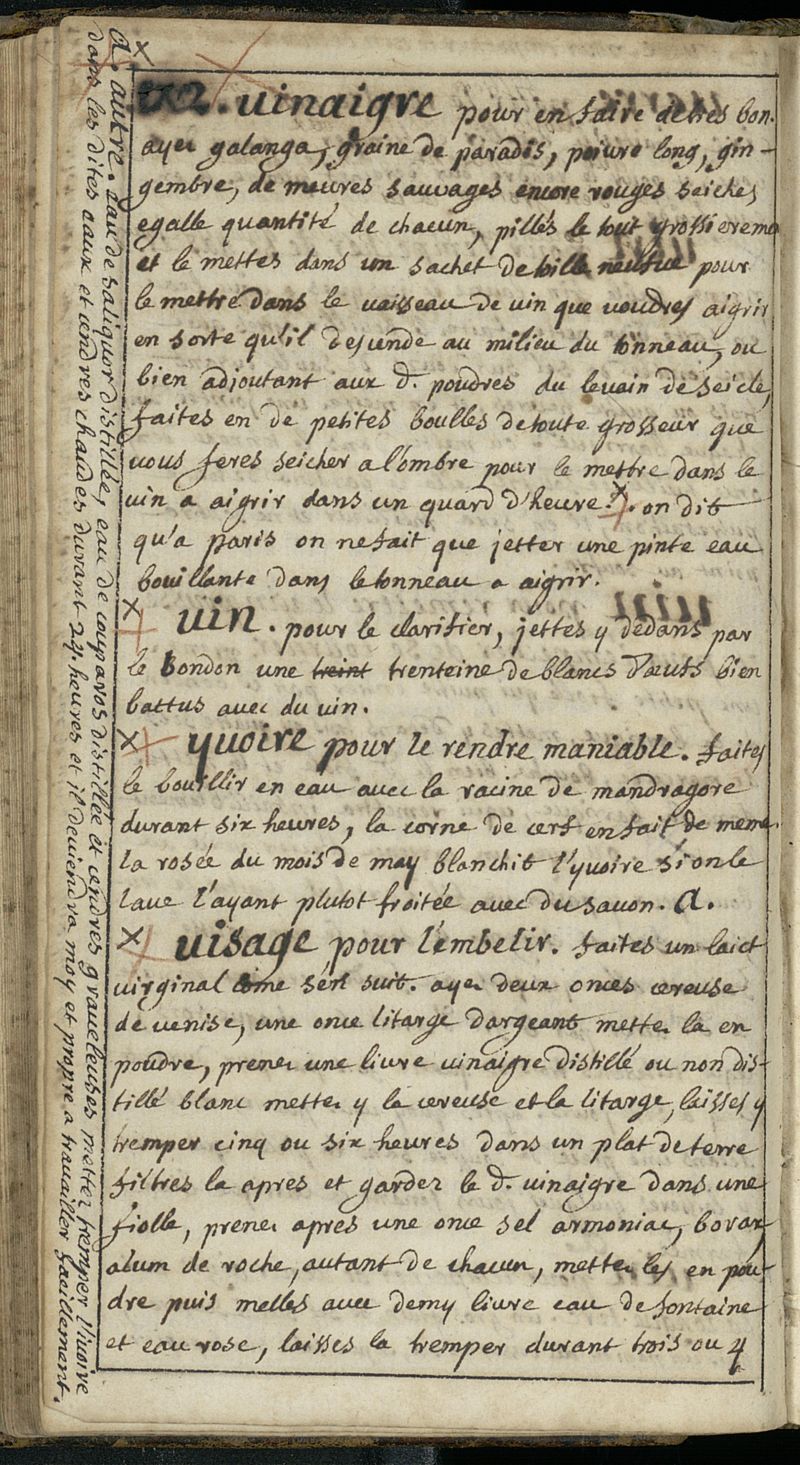 uinaigre pour en faire de tres bon.
ayez galanga, graine de paradis, poiure long, gin-
gembre, de meures sauuages encore rouges seiches
egalle quantité de chacun, pillés le tout grossierem
et le mettes dans un sachet de toille neufue pour
le mettre dans le uaisseau de uin que uoudres aigrir
en sorte qu'il desende au milieu du tonneau, ou
bien adjoutant aux d. poudres du leuain de seicle,
faites en de petites boulles de toute grosseur que
uous feres seicher a l'ombre pour le mettre dans le
uin a aigrir dans un quard d'heure. on dit
qu'a paris on ne fait que jetter une pinte eau
bouillante dans le tonneau a aigrir.
x uin. pour le clarifier, jettes y dedans par
le bondon une treint trenteine de blancs d'oeufs bien
battus auec du uin.
x yuoire pour le rendre maniable. faites
le bouillir en eau auec la racine de mandragore
durant six heures, la corne de cerf en fait de meme.
la rosée du mois de may blanchit l'yuoire si on le
laue l'ayant plutot froitée auec du sauon. a.
x uisage pour l'embelir. faites un laict
uirginal come sert suit. ayez deux onces cereuse
de uenise, une once litarge d'argeant mettez la en
poudre, prenez une liure uinaigre distillé ou non dis-
tillé blanc mettez y la cereuse et la litarge, laisses y
tremper cinq ou six heures dans un plat de terre
filtres la apres et gardez le d. uinaigre dans une
fiolle, prenez apres une once sel armoniac, borax,
alum de roche, autant de chacun, mettez les en pou-
dre puis melles auec demy liure eau de fontaine
et eau rose, laisses la tremper durant trois ou 4
a. autre. eau de saliquor distillée, eau de couparos distillée et cendres graueleuses mettez tremper l'iuoire
dans les dites eaux et cendres chaudes durant 24. heures et il deuiendra moy et propre a trauailler facillement.